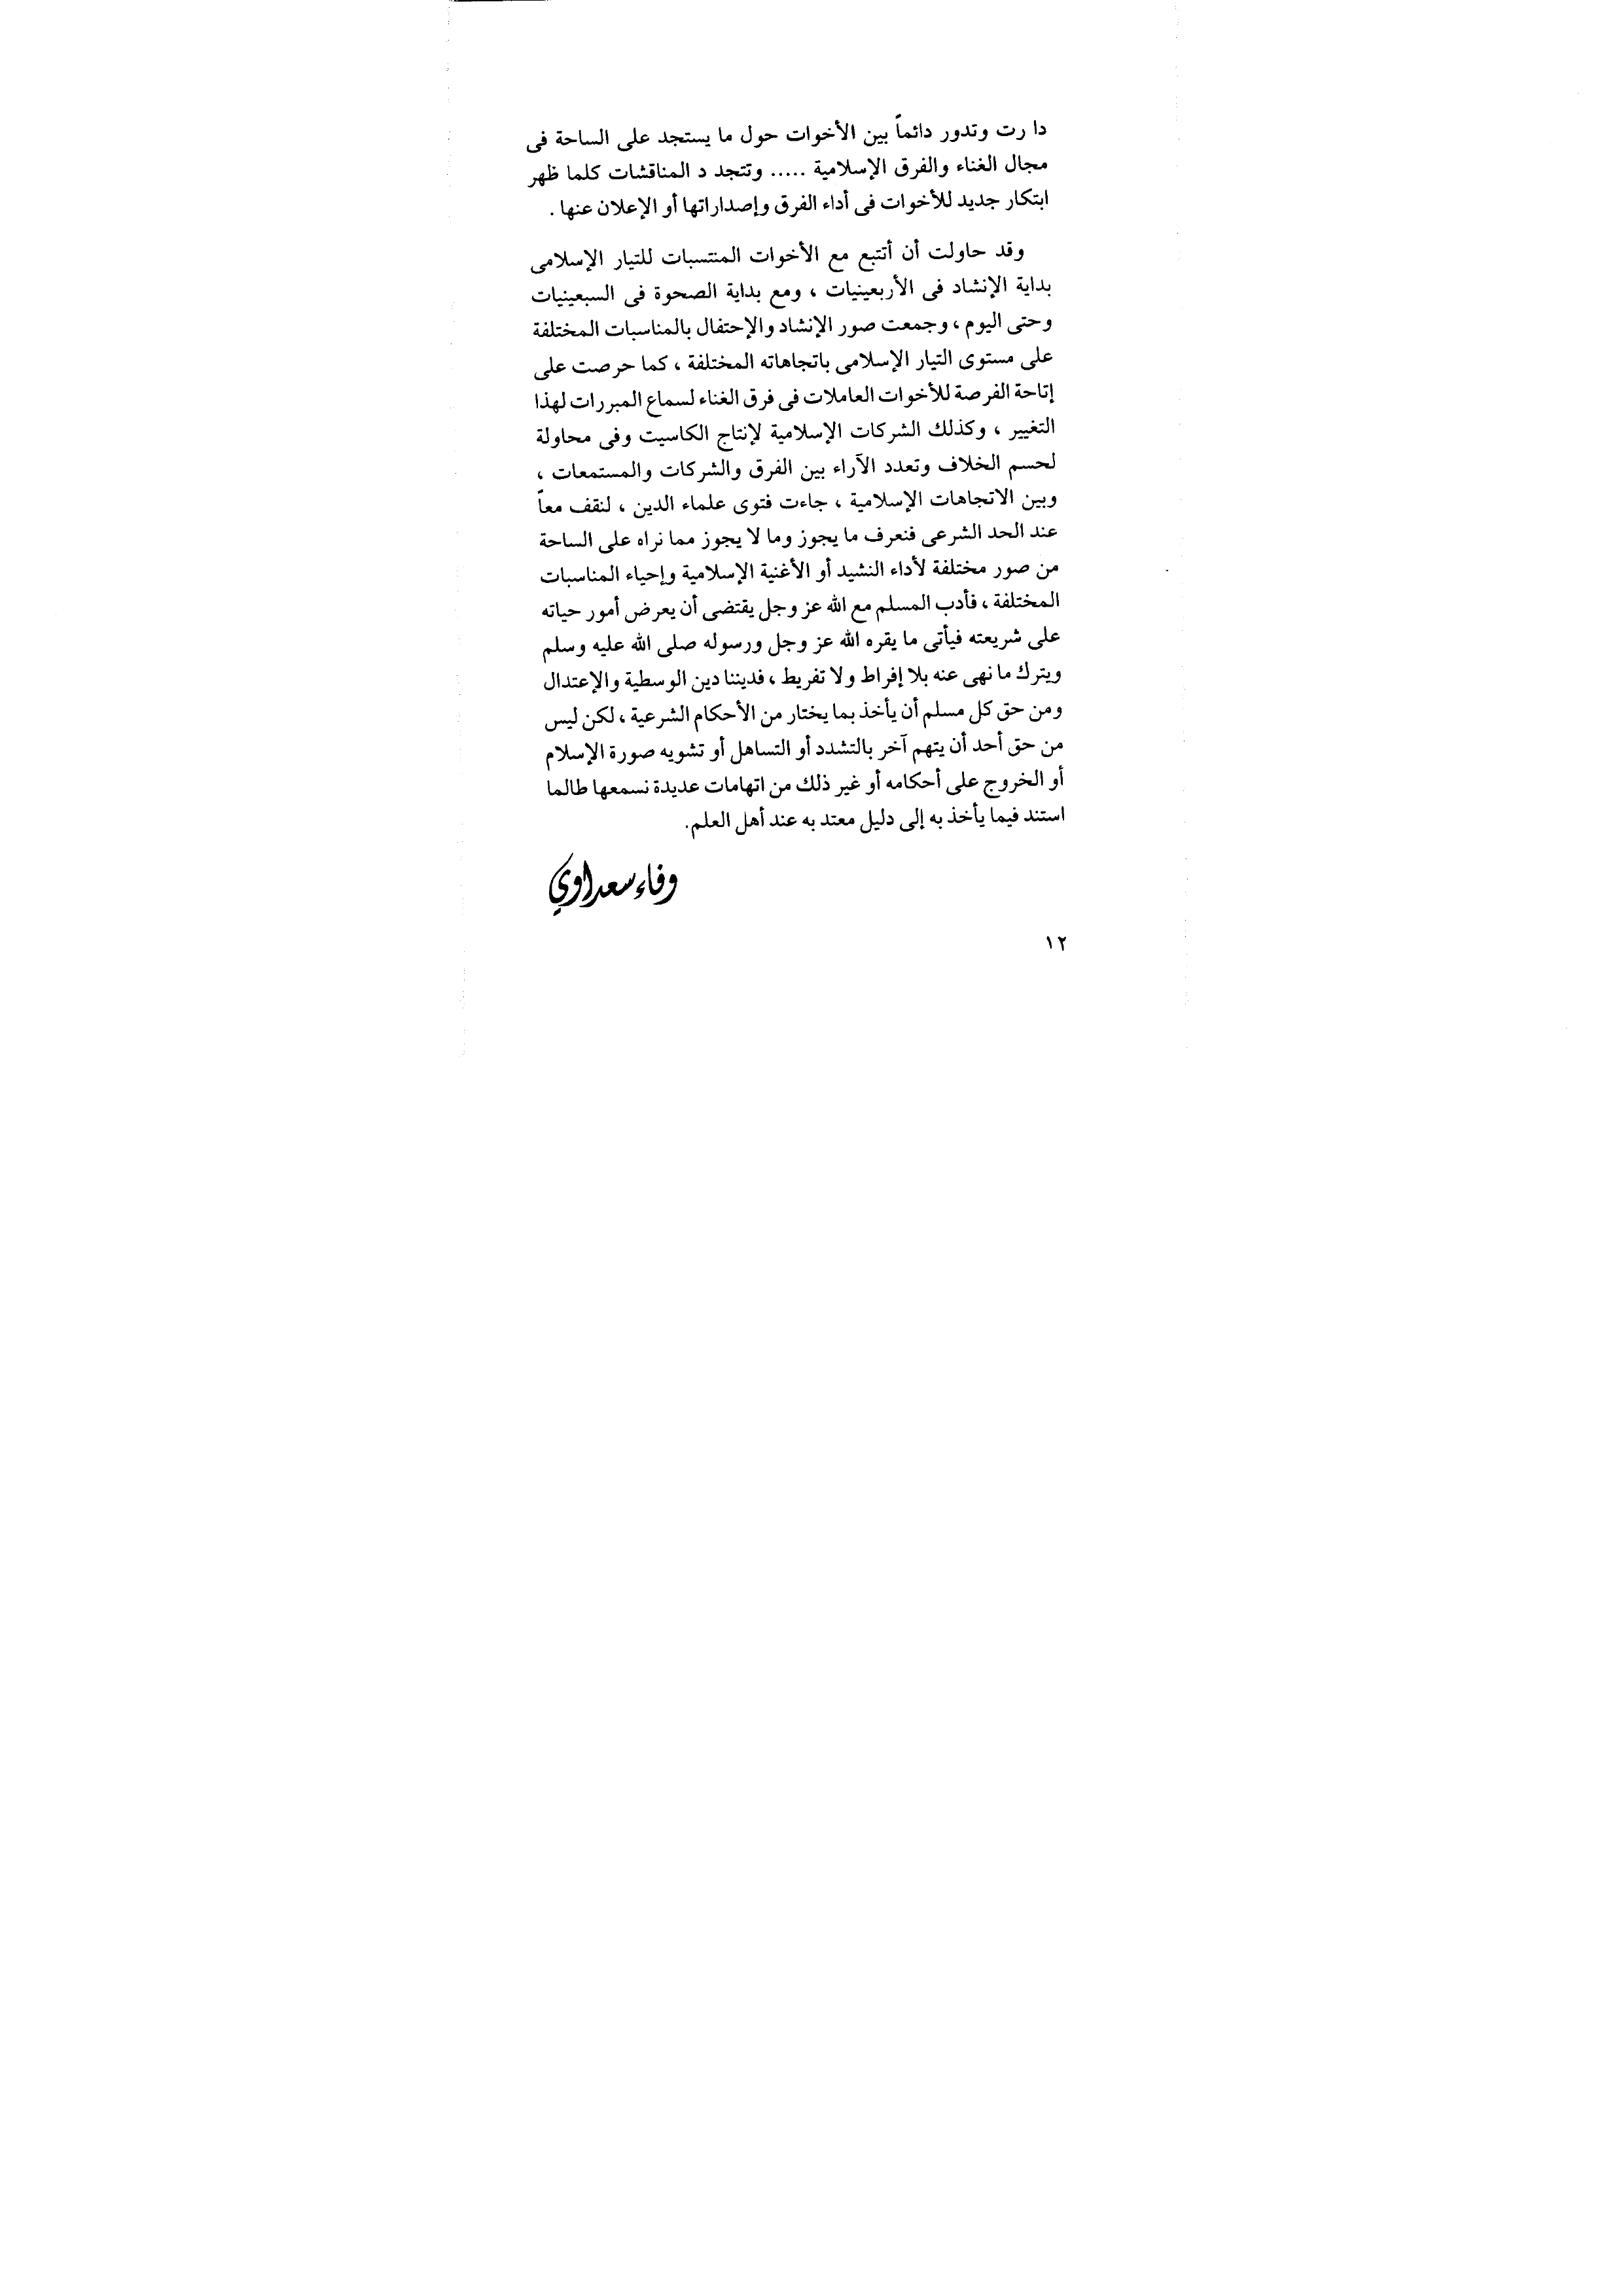 دا رت وتدور دائماً بين الأخوات حول ما يستجد على الساحة فى
مجال الغناء والفرق الإسلامية ..... وتتجد د المناقشات كلما ظهر
ابتكار جديد للأخوات فى أداء الفرق وإصداراتها أو الإعلان عنها .
وقد حاولت أن أتتبع مع الأخوات المنتسبات للتيار الإسلامى
بداية الإنشاد فى الأربعينيات ، ومع بداية الصحوة فى السبعينيات
وحتى اليوم ، وجمعت صور الإنشاد والإحتفال بالمناسبات المختلفة
على مستوى التيار الإسلامى باتجاهاته المختلفة ، كما حرصت على
إتاحة الفرصة للأخوات العاملات فى فرق الغناء لسماع المبررات لهذا
التغيير ، وكذلك الشركات الإسلامية لإنتاج الكاسيت وفى محاولة
لحسم الخلاف وتعدد الآراء بين الفرق والشركات والمستمعات ،
وبين الاتجاهات الإسلامية ، جاءت فتوى علماء الدين ، لنقف معاً
عند الحد الشرعى فنعرف ما يجوز وما لا يجوز مما نراه على الساحة
من صور مختلفة لأداء النشيد أو الأغنية الإسلامية وإحياء المناسبات
المختلفة ، فأدب المسلم مع الله عز وجل يقتضى أن يعرض أمور حياته
على شريعته فيأتى ما يقره الله عز وجل ورسوله صلى الله عليه وسلم
ويترك ما نهى عنه بلا إفراط ولا تفريط ، فديننا دين الوسطية والإعتدال
ومن حق كل مسلم أن يأخذ بما يختار من الأحكام الشرعية ، لكن ليس
من حق أحد أن يتهم آخر بالتشدد أو التساهل أو تشويه صورة الإسلام
أو الخروج على أحكامه أو غير ذلك من اتهامات عديدة نسمعها طالما
استند فيما يأخذ به إلى دليل معتد به عند أهل العلم.
وفاء سعداوي
١٢